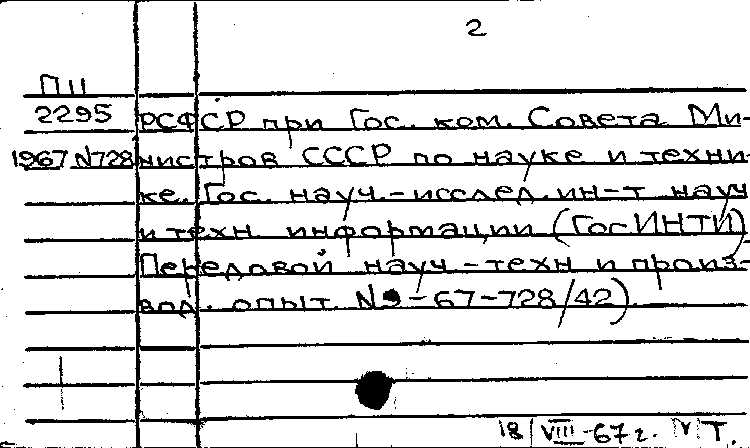 2
П 11
2295 РСФСР при Гос. ком. Совета Ми-
1967 N728 нистров СССР по науке и техни-
ке. Гос. науч.-исслед. ин-т науч
и техн информации (ГосИНТИ)
Передовой науч-техн и произ-
вод. опыт N -67-728/42).
18/VIII-67 г.